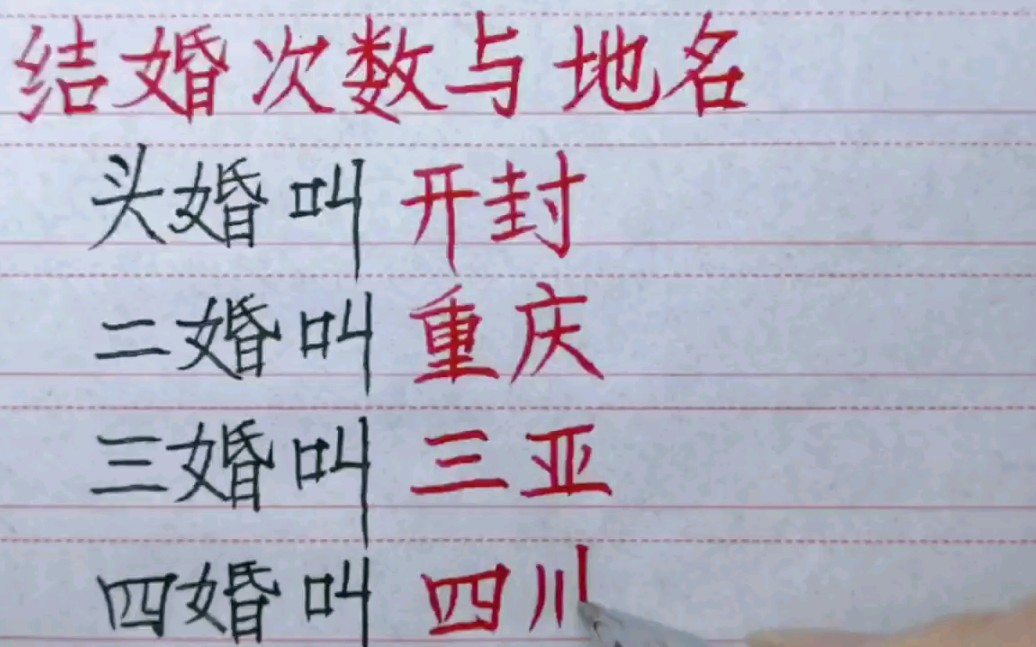 结婚次数与地名
头婚叫开封
二婚叫重庆
三婚叫三亚
四婚叫四川